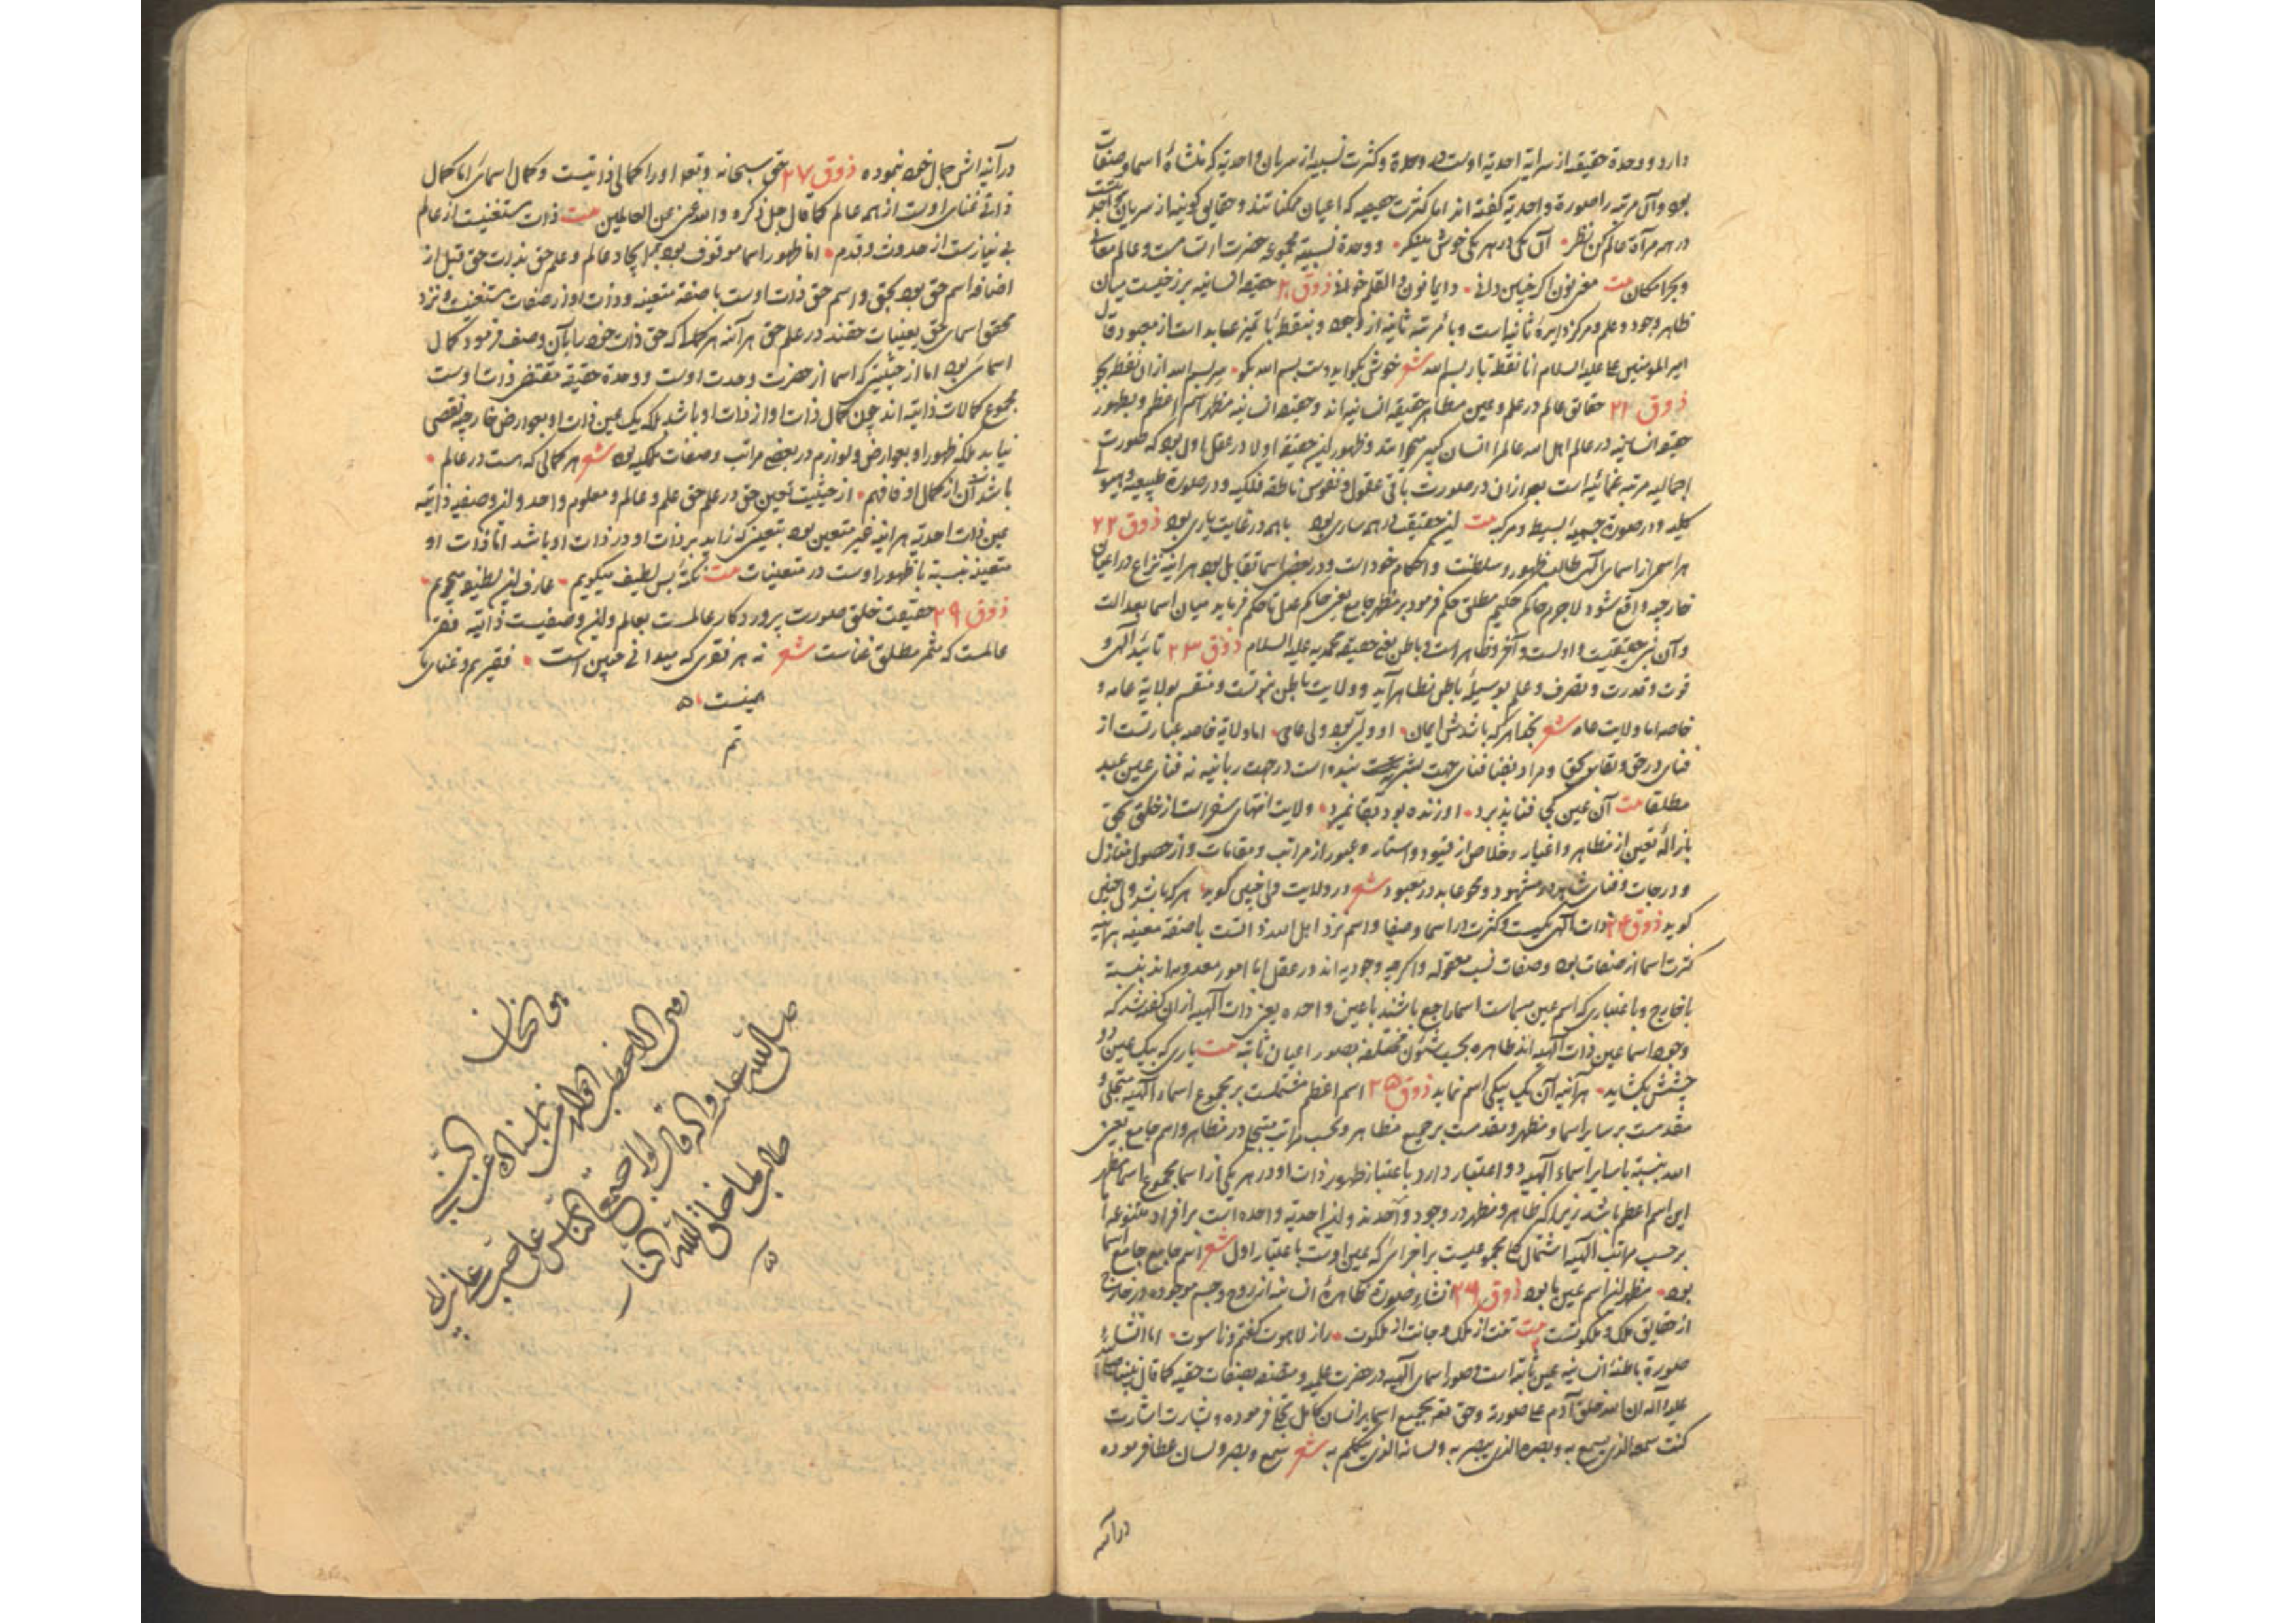 دارد و وحدة حقیقیه از سرایه احدیه اوست در وحدة و کثرت نسبیه از سریان واحدیه که منشاء اسما و صفات
بود و آن مرتبه را صورة واحدیه گفته اند اما کثرت حقیقیه که اعیان ممکناتند و حقایق کونیه از سریان
در همه مرآة عالم کن نظر آن یکی در هر یکی خوش مینگر و وحدة نسبیه مجموعه حضرت است و عالم معانی
و بحر امکان بیت مغز نون اگر چنین دانی دایما نون والقلم خوانی ذوق ۲۰ حقیقه انسانیه برزخیست میان
ظاهر وجود و علم و مرکز دایرهٔ ثانیه است و با مرتبه ثانیه از وجود و بنقطهٔ با تمیز عابد است از معبود قال
امیر المومنین علی علیه السلام انا نقطة باء بسم الله شعر خوش بگو ایدوست بسم الله بگو سر بسم الله از آن نقطه بجو
ذوق ۲۱ حقائق عالم در علم و عین مظاهر حقیقه انسانیه اند و حقیقه انسانیه مظهر اسم اعظم و بظهور
حقیقه انسانیه در عالم اهل الله عالم را انسان کبیر میخوانند و ظهور این حقیقه اولا در عقل اول بود که صورت
اجمالیه مرتبه عمائیه است بعد از آن در صورت باقی عقول و نفوس ناطقه فلکیه و در صورة طبیعیه و هیولی
کلیه و در صورة جسمیه بسیط و مرکبه بیت این حقیقت در همه ساری بود با همه در غایت یاری بود ذوق ۲۲
هر اسمی از اسمای الهی طالب ظهور و سلطنت و احکام خود است و در بعضی اسما تقابل بود هر آینه نزاع در اعیان
خارجیه واقع شود لاجرم حاکم حکیم مطلق حکم فرمود بر مظهر جامع یعنی حاکم عدل تا حکم فرماید میان اسما بعدالت
و آن نبی حقیقیست و اولست و آخر و ظاهر است و باطن یعنی حقیقه محمدیه علیه السلام ذوق ۲۳ تائید الهی و
قوت و قدرت و تصرف و علم بوسیلهٔ باطن بظاهر آید و ولایت باطن نبوتست و منقسم بولایة عامه و
خاصه اما ولایت عامه شعر بخدا هر که باشدش ایمان او ولی بود ولی عامی اما ولایة خاصه عبارتست از
فنای در حق و بقای بحق و مراد بفنا فنای جهت بشریت بنده است در جهت ربانیه نه فنای عین عبد
مطلقا بیت آن عین کجی فنا پذیرد او زنده بود دبقا نمیرد ولایت انتهای سفر است از خلق بحق
بازالهٔ تعین از مظاهر و اغیار و خلاص از قیود و استار و عبور از مراتب و مقامات و از حصول منازل
و درجات و فنای شاهد در مشهود و محو عابد در معبود شعر در ولایت ولی چنین گوید هر که باشد ولی چنین
گوید ذوق ۲۴ ذات الهی یکیست و کثرت در اسما و صفات و اسم نزد اهل الله ذاتست با صفة معینه هر آینه
کثرت اسما از صفات بود و صفات نسب معقوله و اگرچه وجودیه اند در عقل اما امور معدومه اند بنسبة
با خارج و باعتباری که اسم عین مسماست اسما راجع باشند باعین واحده یعنی ذات الهیه از آن گفته شد که
وجود اسما عین ذات الهیه اند ظاهره بحسب شئون مختلفه بصور اعیان ثابته بیت یاری که بیک عین دو
چشمش بگشاید هر آینه آن یک بیکی اسم نماید ذوق ۲۵ اسم اعظم مشتملست بر مجموع اسماء الهیه متجلی و
مقدمست بر سایر اسما و مظهر و مقدمست بر جمیع مظاهر و بحسب مراتب متجلی در مظاهر و اسم جامع یعنی
الله بنسبة با سایر اسماء الهیه دو اعتبار دارد باعتبار ظهور ذات او در هر یکی از اسما مجموع اسما مظهر
این اسم اعظم باشد زیرا که ظاهر و مظهر در وجود واحدند و این احدیة واحده است بر افراد متنوعه اما
بر حسب مراتب الهیه اشتمال کل مجموعیست بر اجزائی که عین اوست باعتبار اول شعر اسم جامع جامع اسما
بود مظهر این اسم عین ما بود ذوق ۲۶ انشاء صورة ظاهرهٔ انسانیه از روح و جسم موجوده در خارج
از حقایق ملک و ملکوتست بیت تنت از ملک و جانت از ملکوت راز لاهوت گفتم و ناسوت اما انشاء
صورة باطنهٔ انسانیه عین ثابته است و صور اسمای الهیه در حضرت علمیه و متصف بصفات حقیه کما قال نبینا صلی الله
علیه و آله ان الله خلق آدم علی صورته و حق تعه بجمیع اسما بر انسان کامل تجلی فرموده و بشارت اشارت
کنت سمعه الذی یسمع به و بصره الذی یبصر به و لسانه الذی یتکلم به شعر سمع و بصر و لسان عطا فرموده
درآینه
در آینه اش جمال خود بنموده ذوق ۲۷ حق سبحانه و تعه او را کمالی ذاتیست و کمال اسمائی اما کمال
ذاتی غنای اوست از همه عالم کما قال جل ذکره و الله غنی عن العالمین بیت ذات مستغنیست از عالم
بی نیازست از حدوث و قدم اما ظهور اسما موقوف بود بایجاد عالم و علم حق بذات حق قبل از
اضافه اسم حق بود بحق و اسم حق ذات اوست با صفة متعینه و ذات او از صفات مستغنیست و نزد
محقق اسمای حق یعینیات حقند در علم حق هر آینه هر کمال که حق ذات خود را بآن وصف فرمود کمال
اسمائی بود اما از حیثیتی که اسما از حضرت وحدت اوست و وحدة حقیقیه مقتضی ذات اوست
مجموع کمالات ذاتیه اند چون کمال ذات او از ذات او باشد بلکه یک عین ذات او بعوارض خارجیه نقصی
نیابد بلکه ظهور او بعوارض و لوازم در بعضی مراتب و صفات ملکیه بود شعر هر کمالی که هست در عالم
باشد آن از کمال او فافهم از حیثیت تعین حق در علم حق علم و عالم و معلوم واحد و این وصفیه ذاتیه
عین ذات احدیة هر آینه غیر متعین بود بتعینی که زاید بر ذات او در ذات او باشد اما ذات او
متعین بنسبة با ظهور اوست در متعینات بیت نکتهٔ بس لطیف میگویم عارف این لطیفه میجویم
ذوق ۲۹ حقیقت خلق صورت پروردگار عالمست بعالم و این وصفیست ذاتیه فقر
عالمست که مثمر مطلق غناست شعر نه هر فقری که میدانی چنین است فقیریم و غنای ما
همینست
تم
هو المخان
روی الاخطب
اخطب
النبی
صلی الله علیه و آله قال لو اجتمع الناس علی حب علی
طالب لما خلق الله النار